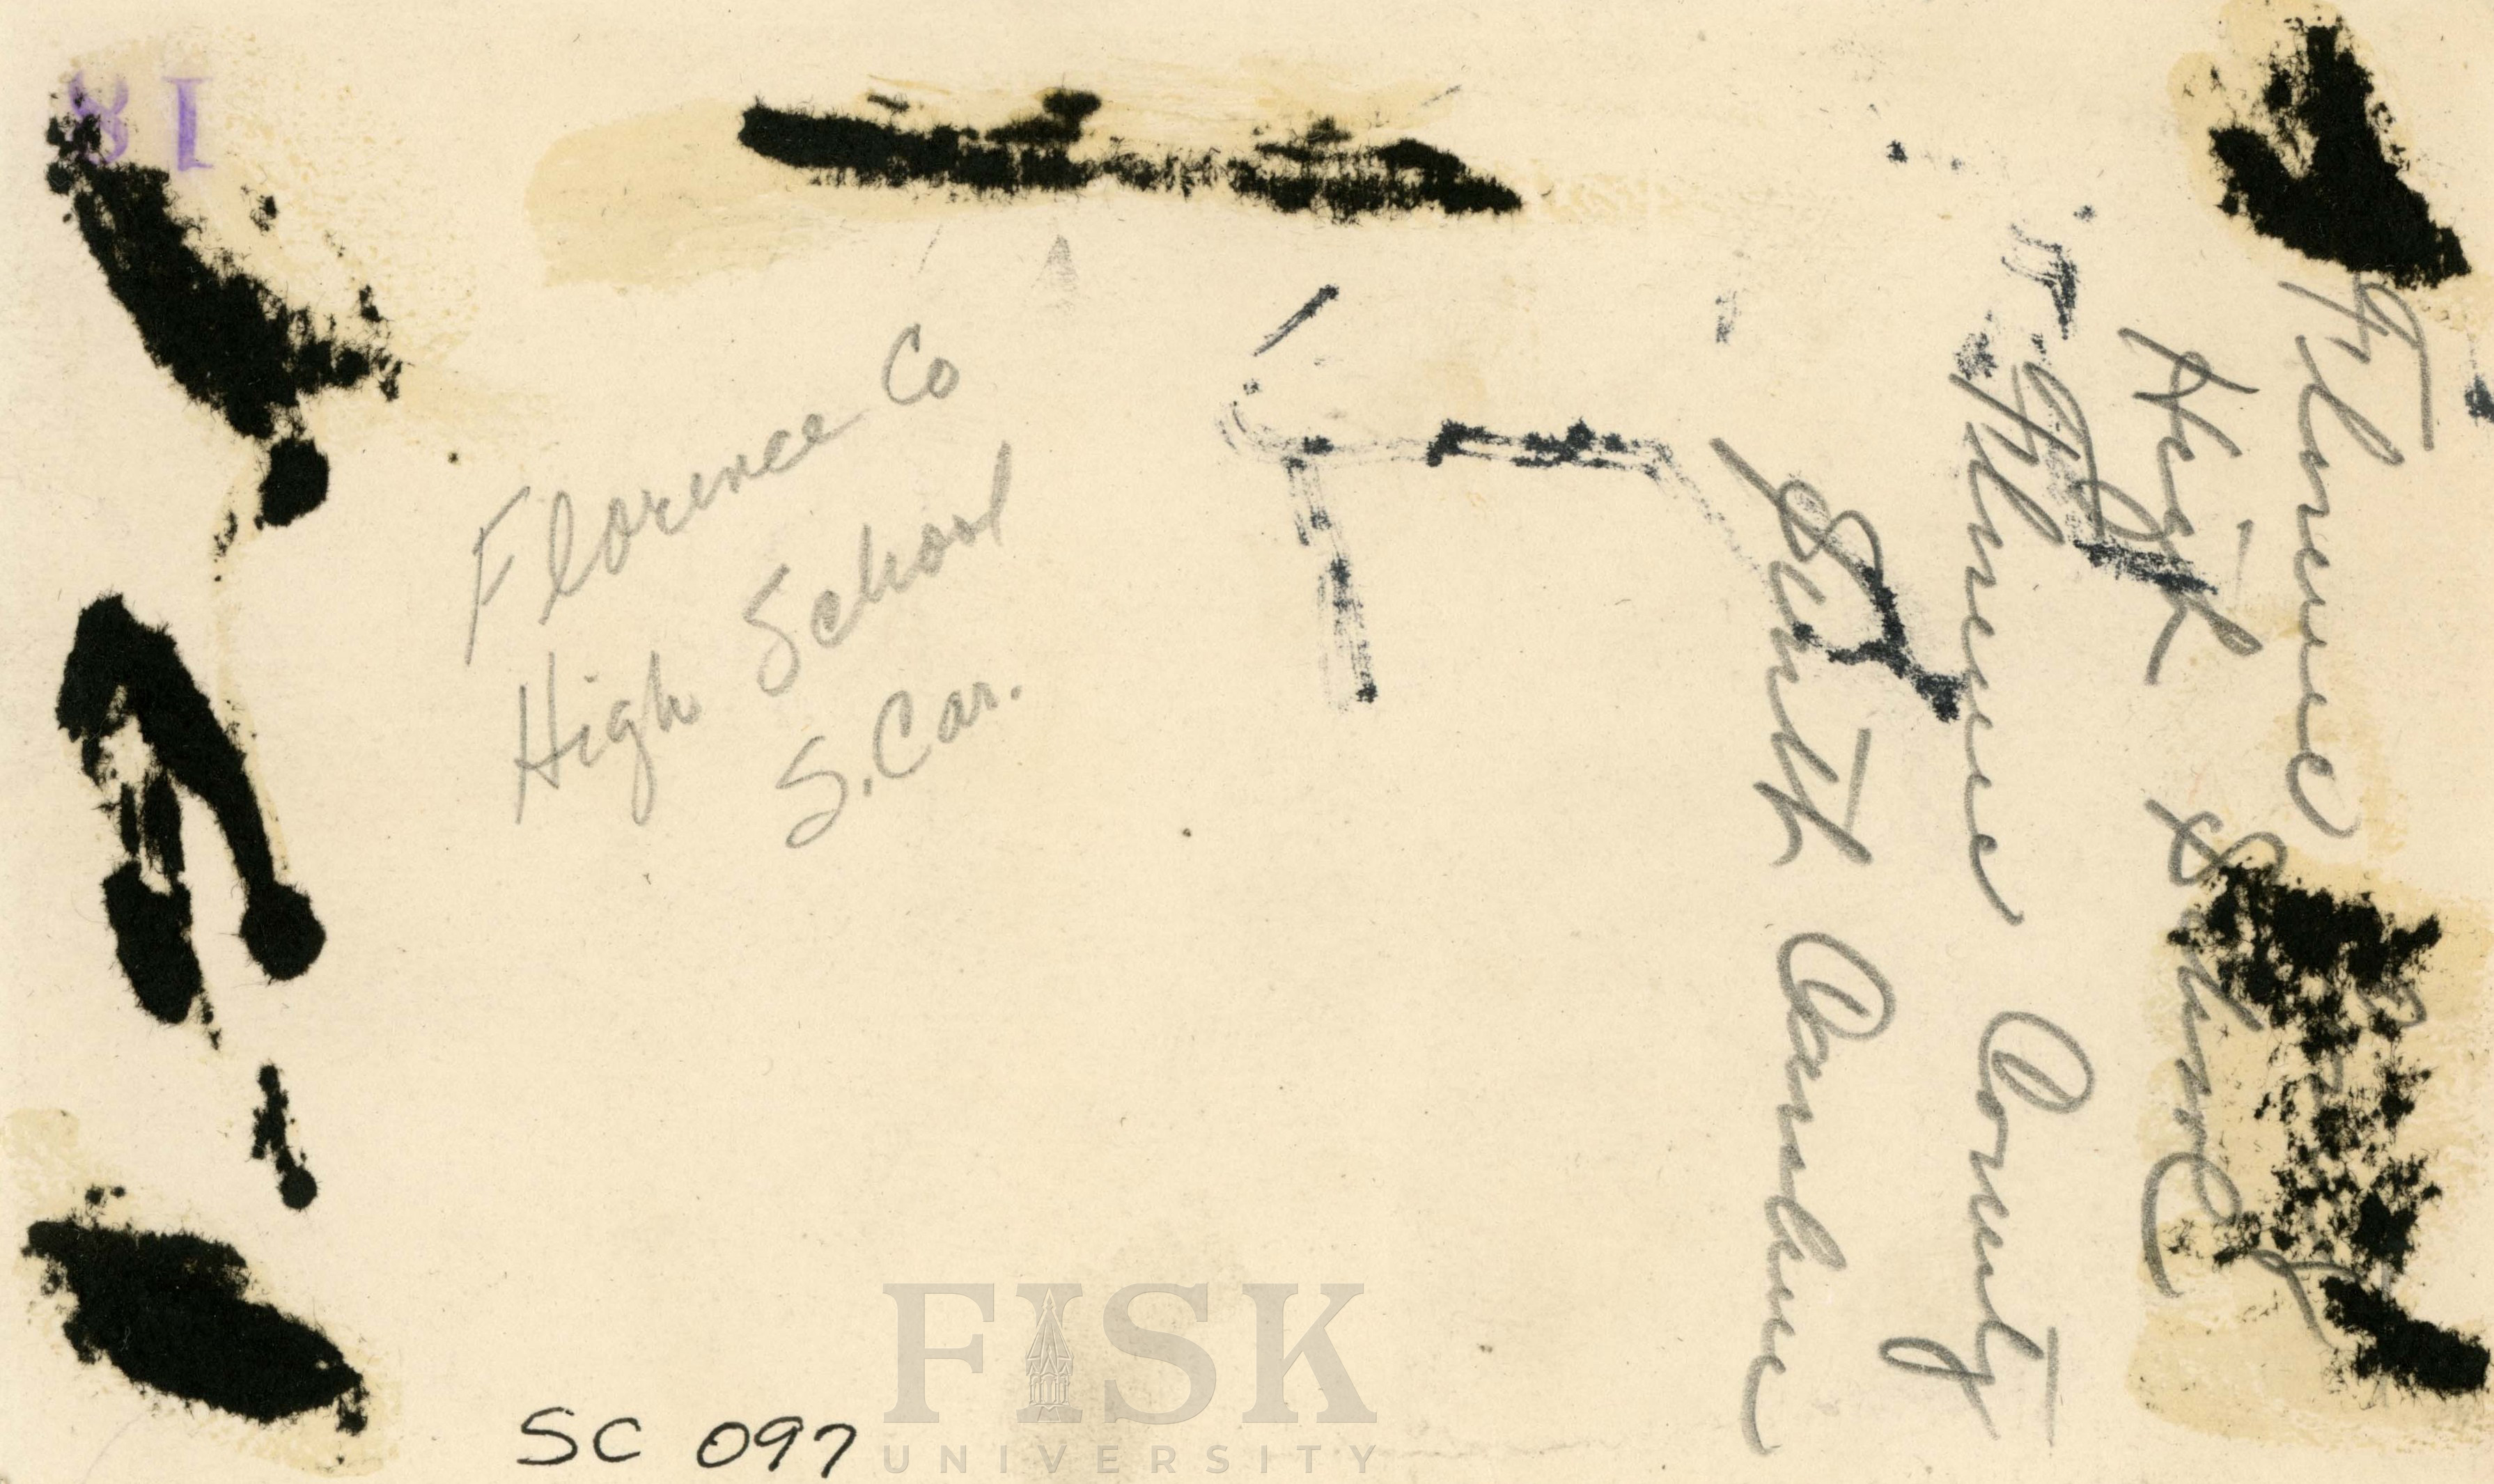 18
Florence Co
High School
S. Car.
Florence
High School
Florence County
South Carolina
SC 097
FISK
UNIVERSITY